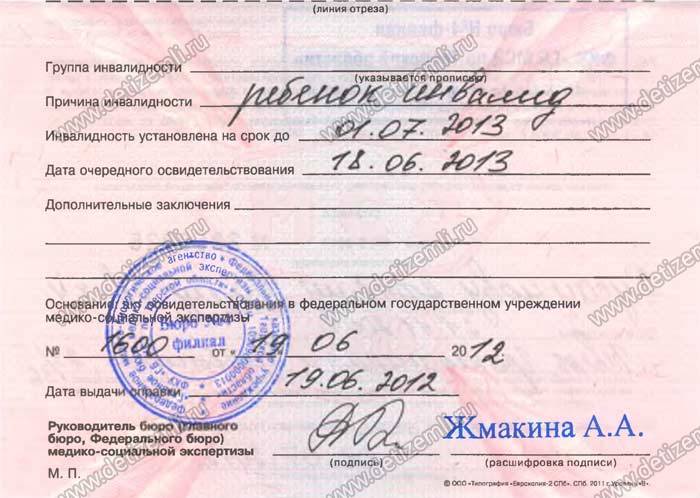 (линия отреза)
Группа инвалидности
(указывается прописью)
Причина инвалидности ребенок инвалид
Инвалидность установлена на срок до 01.07.2013
Дата очередного освидетельствования 18.06.2013
Дополнительные заключения
Основание: акт освидетельствования в федеральном государственном учреждении
медико-социальной экспертизы
№ 1600 от « 19 06 2012
Дата выдачи справки 19.06.2012
Руководитель бюро (главного
бюро, Федерального бюро)
медико-социальной экспертизы
Жмакина А.А.
(подпись) (расшифровка подписи)
М. П.
© ООО «Типография «Еврокопия-2 СПб». СПб. 2011 г. Уровень «В».
Бюро №4
филиал
www.detizemli.ru